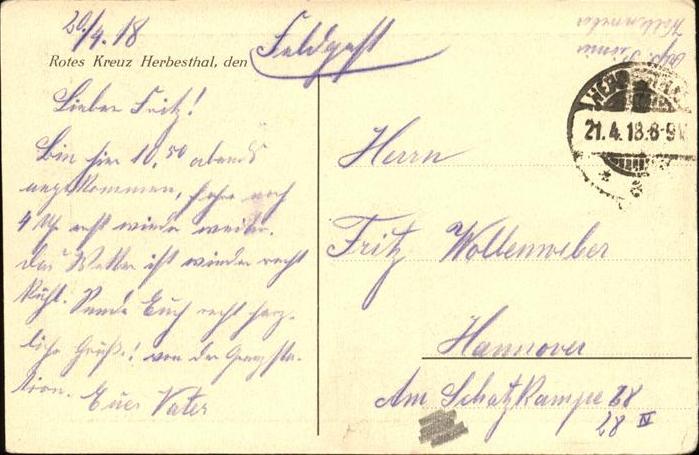 20/4.18
Feldpost
Rotes Kreuz Herbesthal, den
Lieber Fritz!
Bin hier 10,50 abends
angekommen, fahre nach
4 Uhr erst wieder weiter.
Das Wetter ist wieder recht
kühl. Sende Euch recht herz-
liche Grüße! von der Grenzsta-
tion. Euer Vater
21.4.18.8-9V
Herrn
Fritz Wollenweber
Hannover
Am Schatzkampe 28
28 IV
Wollenweber